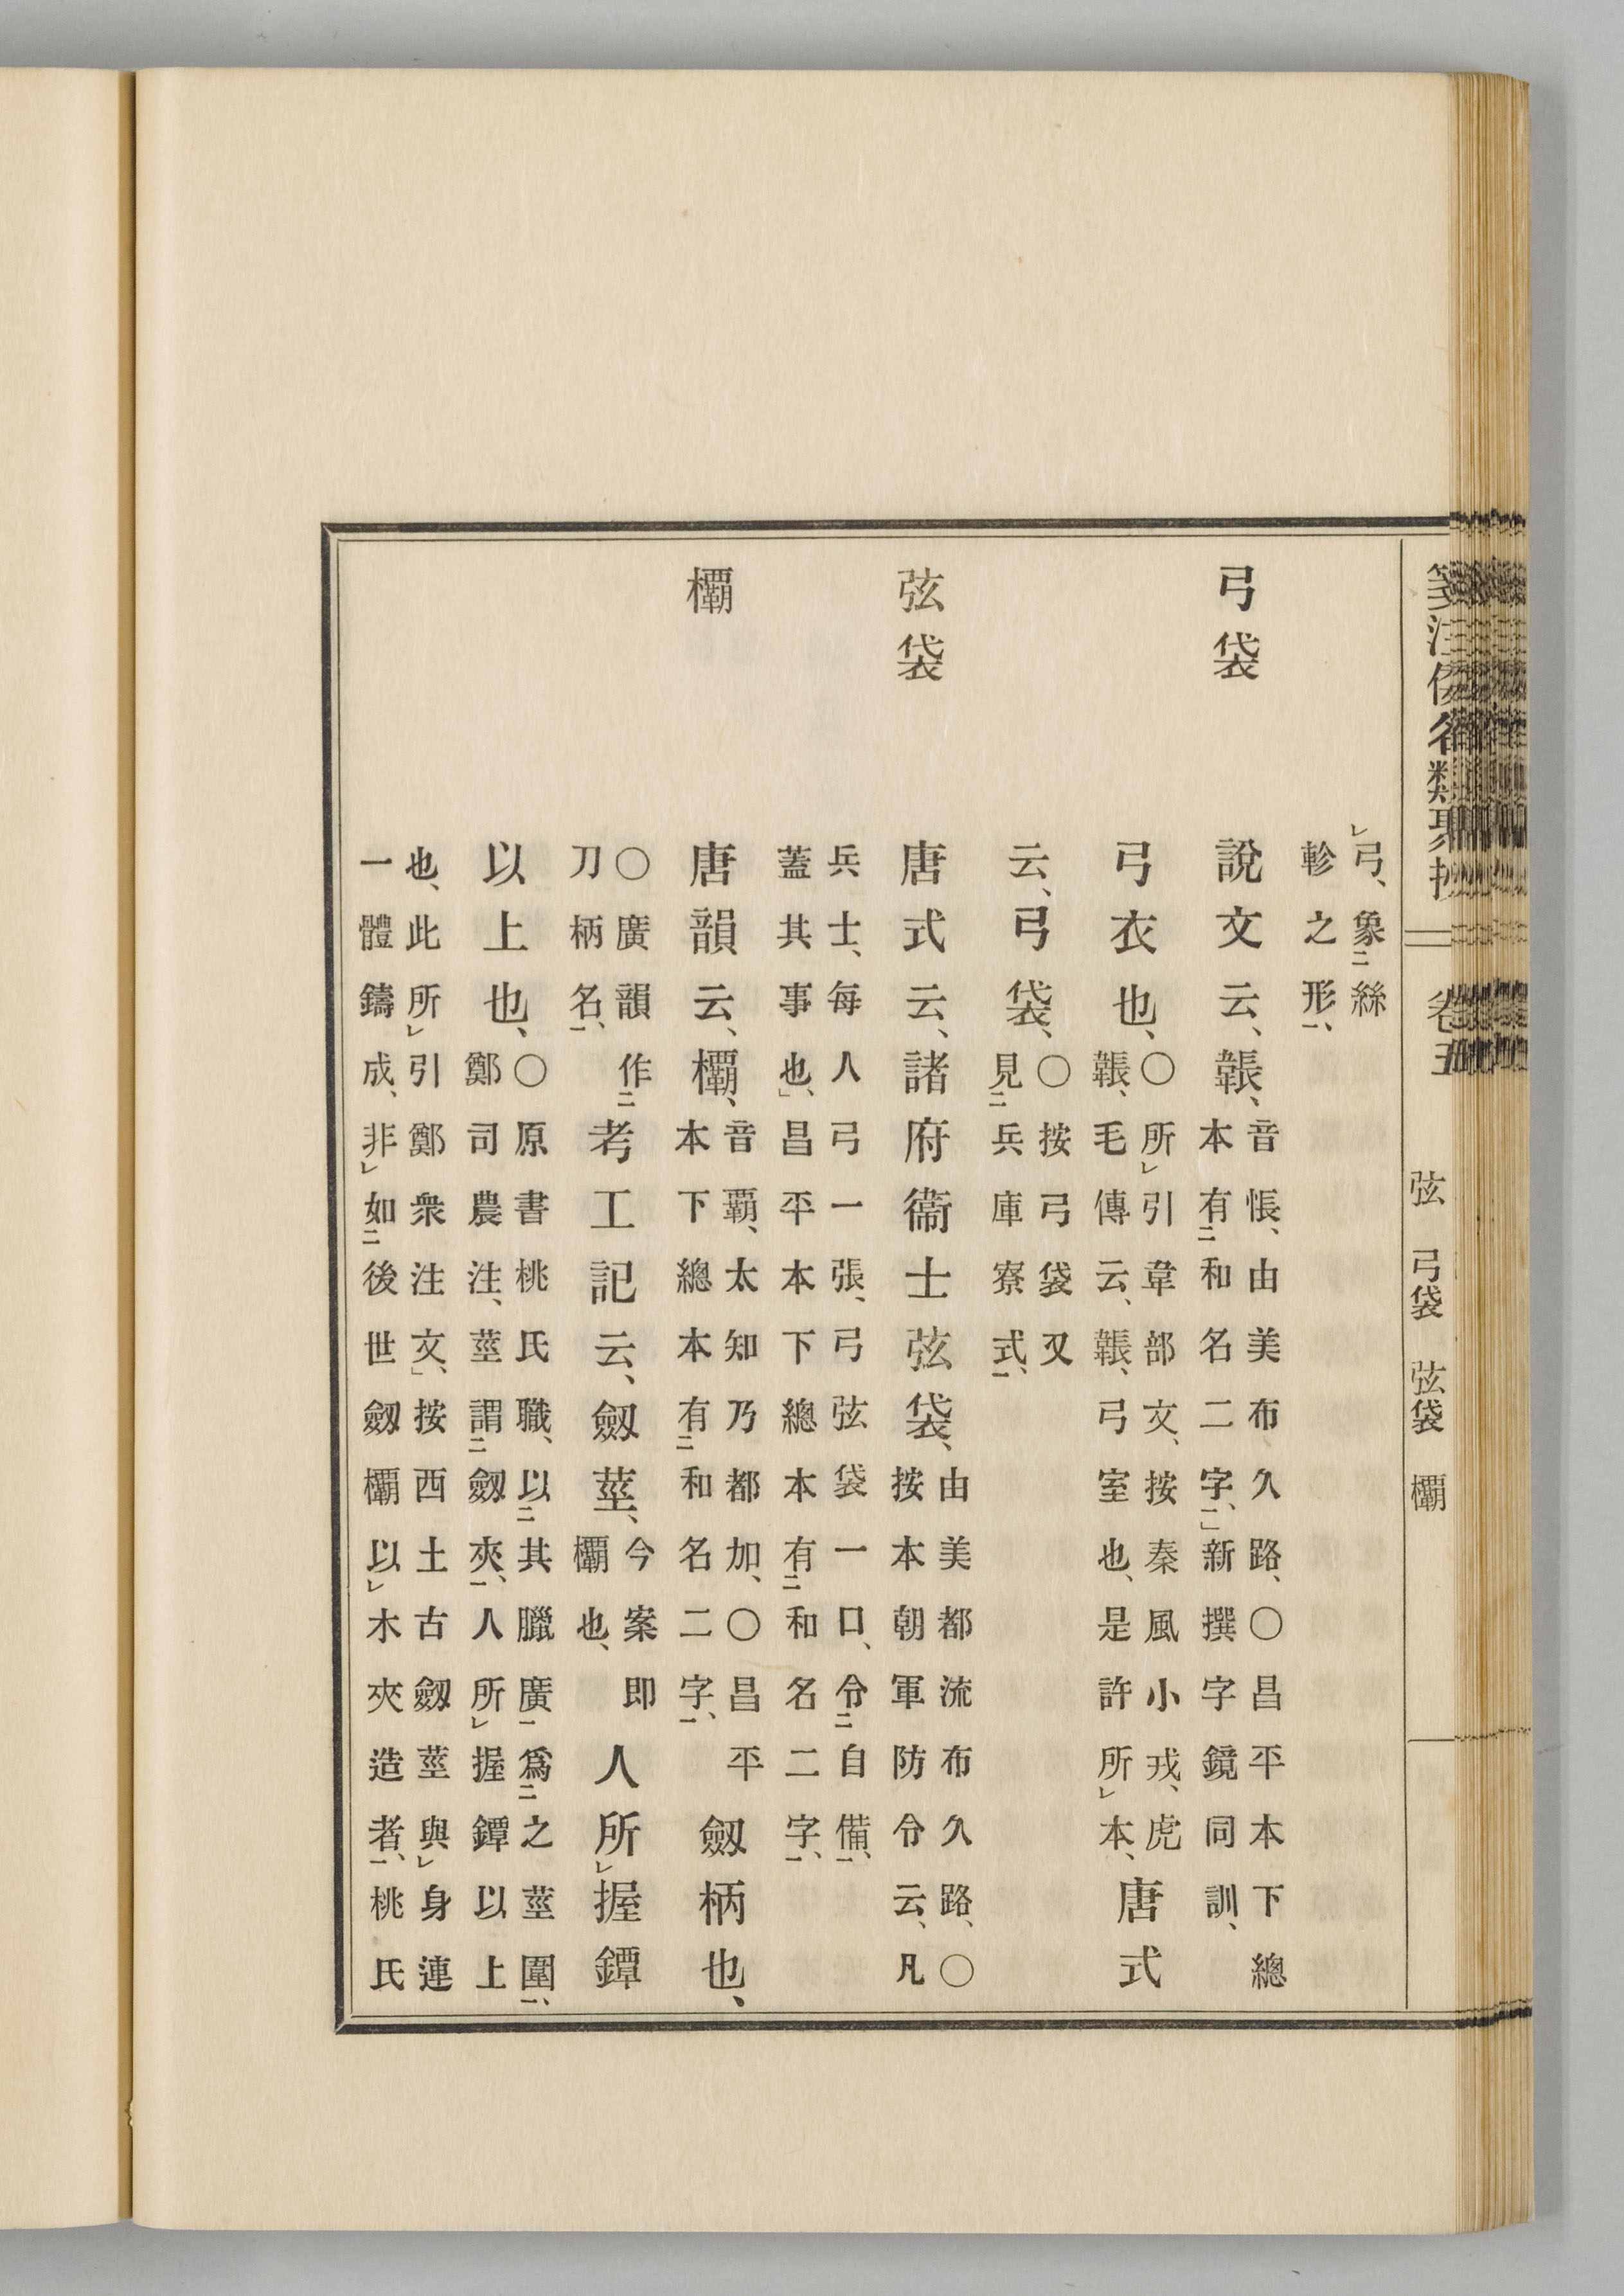 箋注倭名類聚抄 卷五 弦 弓袋 弦袋 欛
弓、象絲
軫之形、
弓袋 說文云、韔、
音悵、由美布久路、〇昌平本下總
本有和名二字、新撰字鏡同訓、
弓衣也、
〇所引韋部文、按秦風小戎、虎
韔、毛傳云、韔、弓室也、是許所本、
唐式
云、弓袋、
〇按弓袋又
見兵庫寮式、
弦袋 唐式云、諸府衞士弦袋、
由美都流布久路、〇
按本朝軍防令云、凡
兵士、每人弓一張、弓弦袋一口、令自備、
蓋其事也、昌平本下總本有和名二字、
欛 唐韻云、欛、
音覇、太知乃都加、〇昌平
本下總本有和名二字、
劒柄也、
〇廣韻作
刀柄名、
考工記云、劒莖、
今案即
欛也、
人所握鐔
以上也、
〇原書桃氏職、以其臘廣爲之莖圍、
鄭司農注、莖謂劒夾、人所握鐔以上
也、此所引鄭衆注文、按西土古劒莖與身連
一體鑄成、非如後世劒欛以木夾造者、桃氏